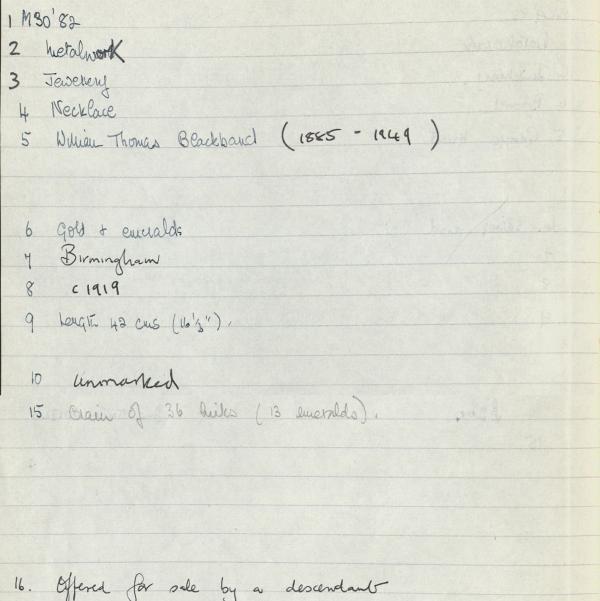 1 M30'82
2 Metalwork
3 Jewellery
4 Necklace
5 William Thomas Blackband (1885 - 1949)
6 Gold + emeralds
7 Birmingham
8 c 1919
9 Length 42 cms (16½").
10 Unmarked
15 Chain of 36 links (13 emeralds).
16. Offered for sale by a descendant